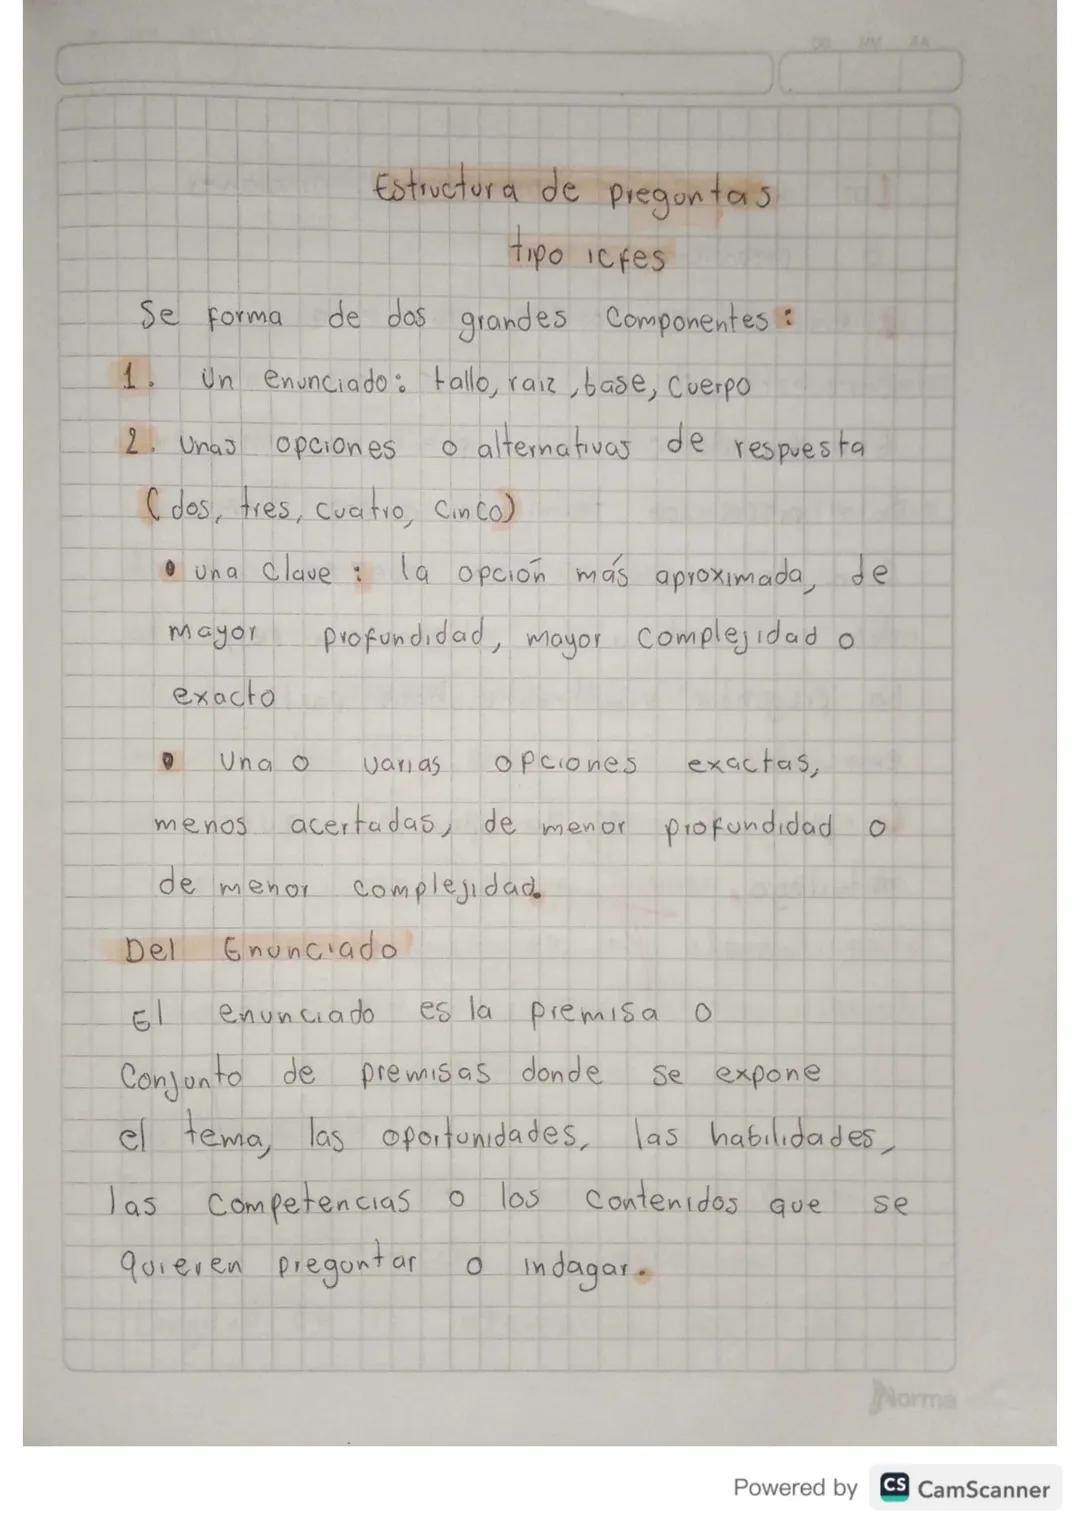 DD MM AA
Estructura de preguntas
tipo icfes
Se forma de dos grandes Componentes:
1. Un enunciado: tallo, raiz, base, Cuerpo
2. Unas opciones o alternativas de respuesta
(dos, tres, cuatro, Cinco)
• una Clave: la opción más aproximada, de
mayor profundidad, mayor complejidad o
exacto
• Una o varias opciones exactas,
menos acertadas, de menor profundidad o
de menor complejidad.
Del Enunciado
El enunciado es la premisa o
Conjunto de premisas donde se expone
el tema, las oportunidades, las habilidades,
las Competencias o los Contenidos que se
quieren preguntar o indagar.
Norma
Powered by CS CamScanner